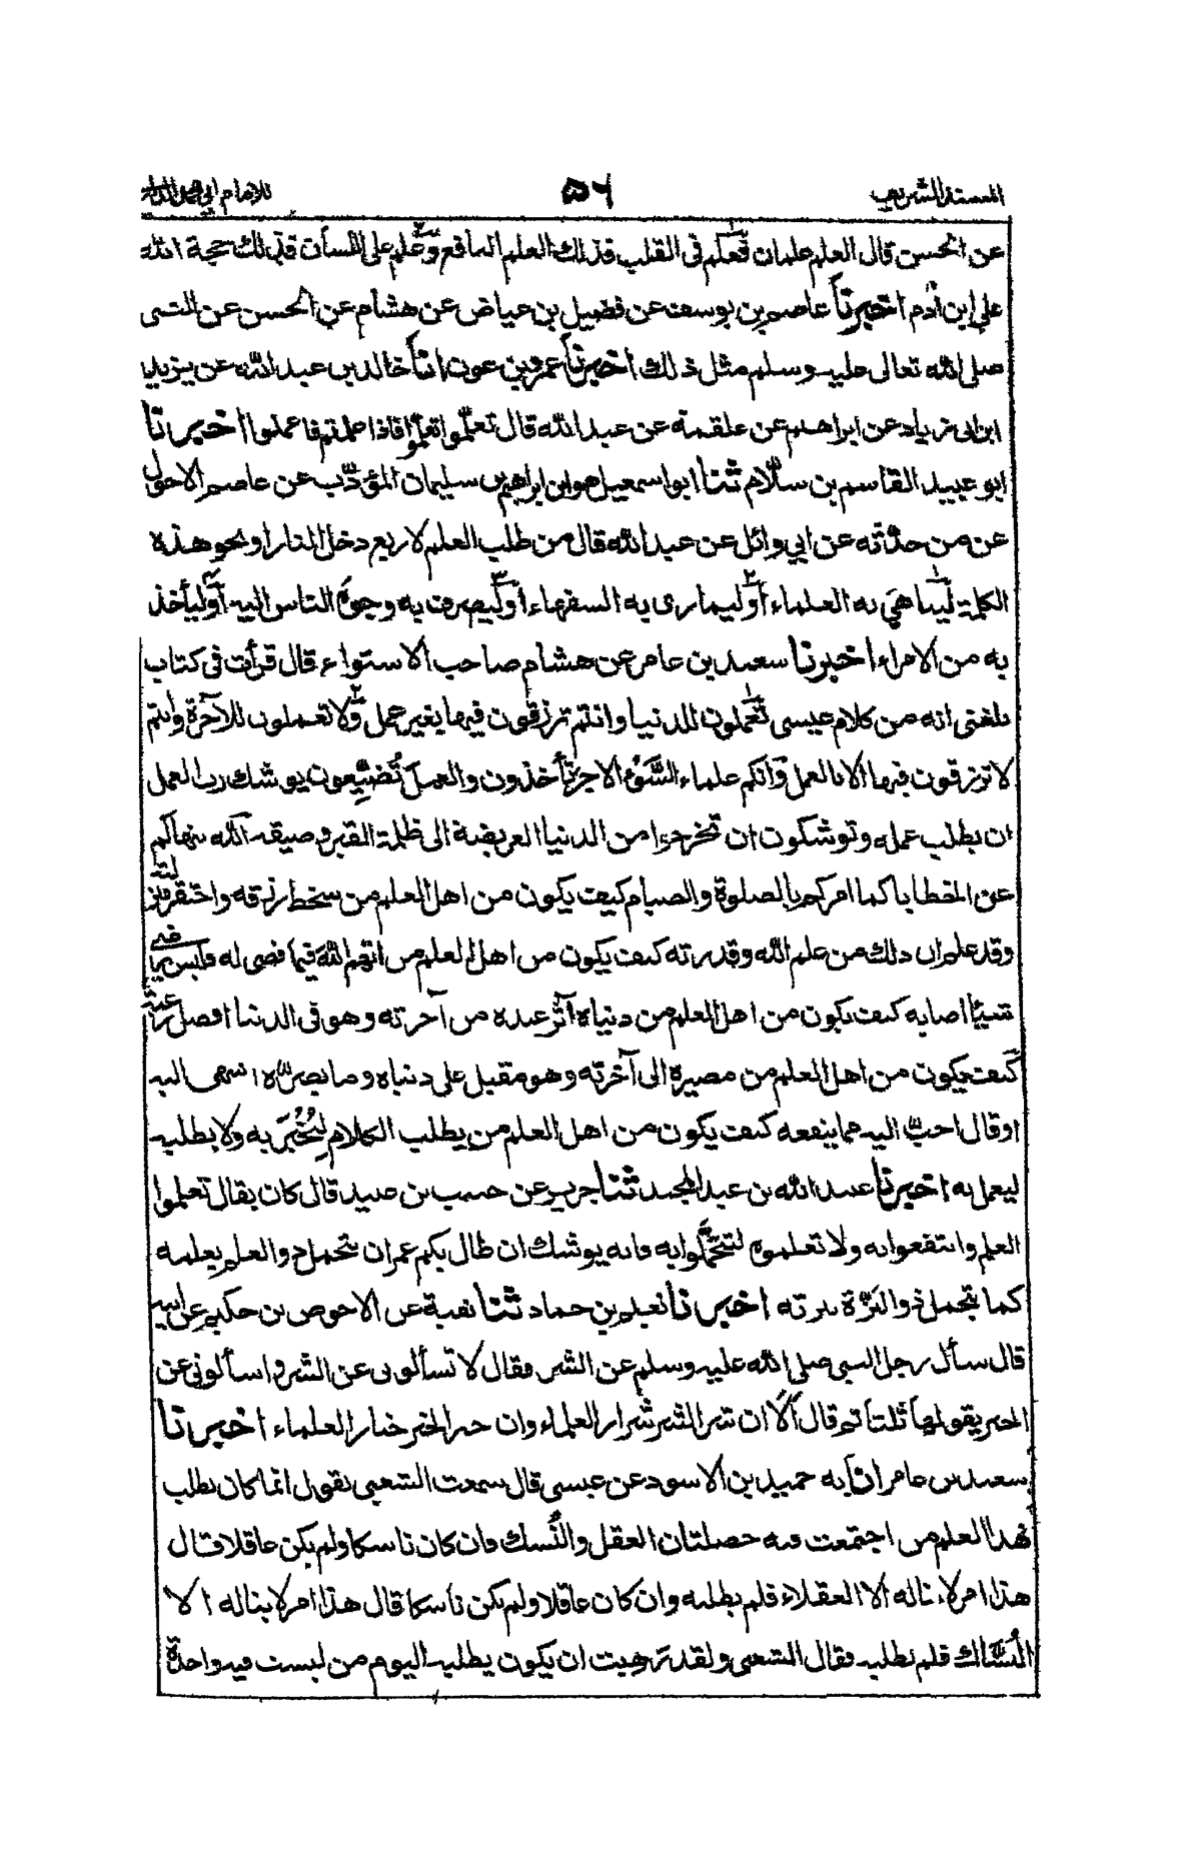 المسند الشريف
٥٦
للامام ابي محمد الدارمي
عن الحسن قال العلم علمان فعلم في القلب فذلك العلم النافع وعلم على اللسان فذلك حجة الله
على ابن آدم اخبرنا عاصم بن يوسف عن فضيل بن عياض عن هشام عن الحسن عن النبي
صلى الله تعالى عليه وسلم مثل ذلك اخبرنا عمرو بن عون انا خالد بن عبد الله عن يزيد
ابن ابي زياد عن ابراهيم عن علقمة عن عبد الله قال تعلموا تعلموا فاذا علمتم فاعملوا اخبرنا
ابو عبيد القاسم بن سلّام ثنا ابو اسمعيل هو ابن ابراهيم بن سليمان المؤدّب عن عاصم الاحول
عن من حدّثه عن ابي وائل عن عبد الله قال من طلب العلم لاربع دخل النار او نحو هذه
الكلمة ليباهي به العلماء أو ليماري به السفهاء أو ليصرف به وجوه الناس اليه أو ليأخذ
به من الامراء اخبرنا سعيد بن عامر عن هشام صاحب الاستواء قال قرأت في كتاب
بلغني انه من كلام عيسى تعملون للدنيا وانتم ترزقون فيها بغير عمل ولا تعملون للآخرة وانتم
لا ترزقون فيها الا بالعمل وانكم علماء السَّوْء الاجر تأخذون والعمل تُضَيِّعون يوشك رب العمل
ان يطلب عمله وتوشكون ان تخرجوا من الدنيا العريضة الى ظلمة القبر وضيقه الله ينهاكم
عن الخطايا كما امركم بالصلوة والصيام كيف يكون من اهل العلم من سخط رزقه واحتقر منزلته
وقد علم ان ذلك من علم الله وقدرته كيف يكون من اهل العلم من اتهم الله فيما قضى له فليس يرضى
شيئا اصابه كيف يكون من اهل العلم من دنياه آثر عنده من آخرته وهو في الدنيا افضل رغبة
كيف يكون من اهل العلم من مصيره الى آخرته وهو مقبل على دنياه وما يضرّه اشهى اليه
او قال احبّ اليه مما ينفعه كيف يكون من اهل العلم من يطلب الكلام لِيُخْبِرَ به ولا يطلبه
ليعمل به اخبرنا عبيد الله بن عبد المجيد ثنا جرير عن حبيب بن عبيد قال كان يقال تعلموا
العلم وانتفعوا به ولا تعلموه لتتجمّلوا به فانه يوشك ان طال بكم عمر ان يتجمل ذو العلم بعلمه
كما يتجمل ذو البَزّة ببزته اخبرنا نعيم بن حماد ثنا بقية عن الاحوص بن حكيم عن ابيه
قال سأل رجل النبي صلى الله عليه وسلم عن الشر فقال لا تسألوني عن الشر واسألوني عن
الخير يقولها ثلثا ثم قال ألا ان شر الشر شرار العلماء وان خير الخير خيار العلماء اخبرنا
سعيد بن عامر انا به حميد بن الاسود عن عيسى قال سمعت الشعبي يقول انما كان يطلب
هذا العلم من اجتمعت فيه خصلتان العقل والنُّسك فان كان ناسكا ولم يكن عاقلا قال
هذا امر لا يناله الا العقلاء فلم يطلبه وان كان عاقلا ولم يكن ناسكا قال هذا امر لا يناله الا
النُّسَّاك فلم يطلبه فقال الشعبي ولقد رهبت ان يكون يطلبه اليوم من ليست فيه واحدة